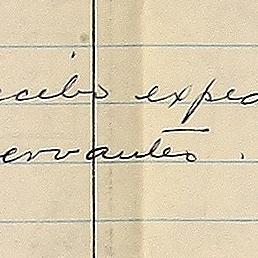 ecibo exped
ervantes.